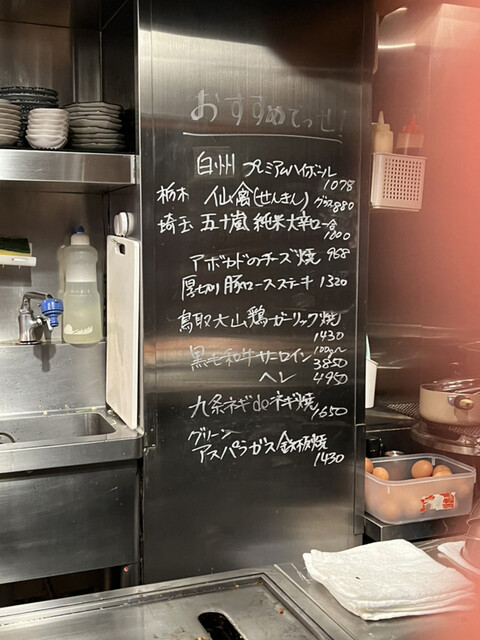 おすすめでっせ!
白州 プレミアムハイボール
1078
栃木 仙禽(せんきん) グラス880
埼玉 五十嵐 純米大辛口一合
1000
アボカドのチーズ焼 968
厚切り豚ロースステーキ 1320
鳥取大山鶏ガーリック焼
1430
黒毛和牛サーロイン 100g〜
3850
ヘレ 4950
九条ネギdeネギ焼
1650
グリーン
アスパラガス鉄板焼
1430